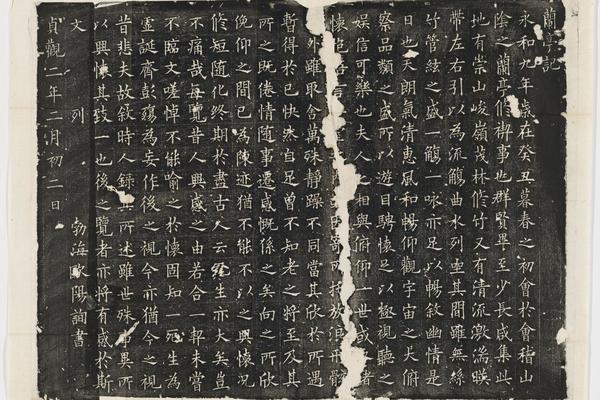 蘭亭記
永和九年歲在癸丑暮春之初會於會稽山
陰之蘭亭脩禊事也群賢畢至少長咸集此
地有崇山峻嶺茂林脩竹又有清流激湍暎
帶左右引以為流觴曲水列坐其間雖無絲
竹管絃之盛一觴一咏亦足以暢敘幽情是
日也天朗氣清惠風和暢仰觀宇宙之大俯
察品類之盛所以遊目騁懷足以極視聽之
娛信可樂也夫人之相與俯仰一世或者
懷言所放浪形骸
外雖取舍萬殊靜躁不同當其欣於所遇
暫得於己快然自足曾不知老之將至及其
所之既倦情隨事遷感慨係之矣向之所欣
俛仰之間已為陳迹猶不能不以之興懷況
脩短隨化終期於盡古人云死生亦大矣豈
不痛哉每覽昔人興感之由若合一契未嘗
不臨文嗟悼不能喻之於懷固知一死生為
虛誕齊彭殤為妄作後之視今亦猶今之視
昔悲夫故敘時人錄其所述雖世殊事異所
以興懷其致一也後之覽者亦將有感於斯
文 列 勃海歐陽詢書
貞觀二年二月初二日